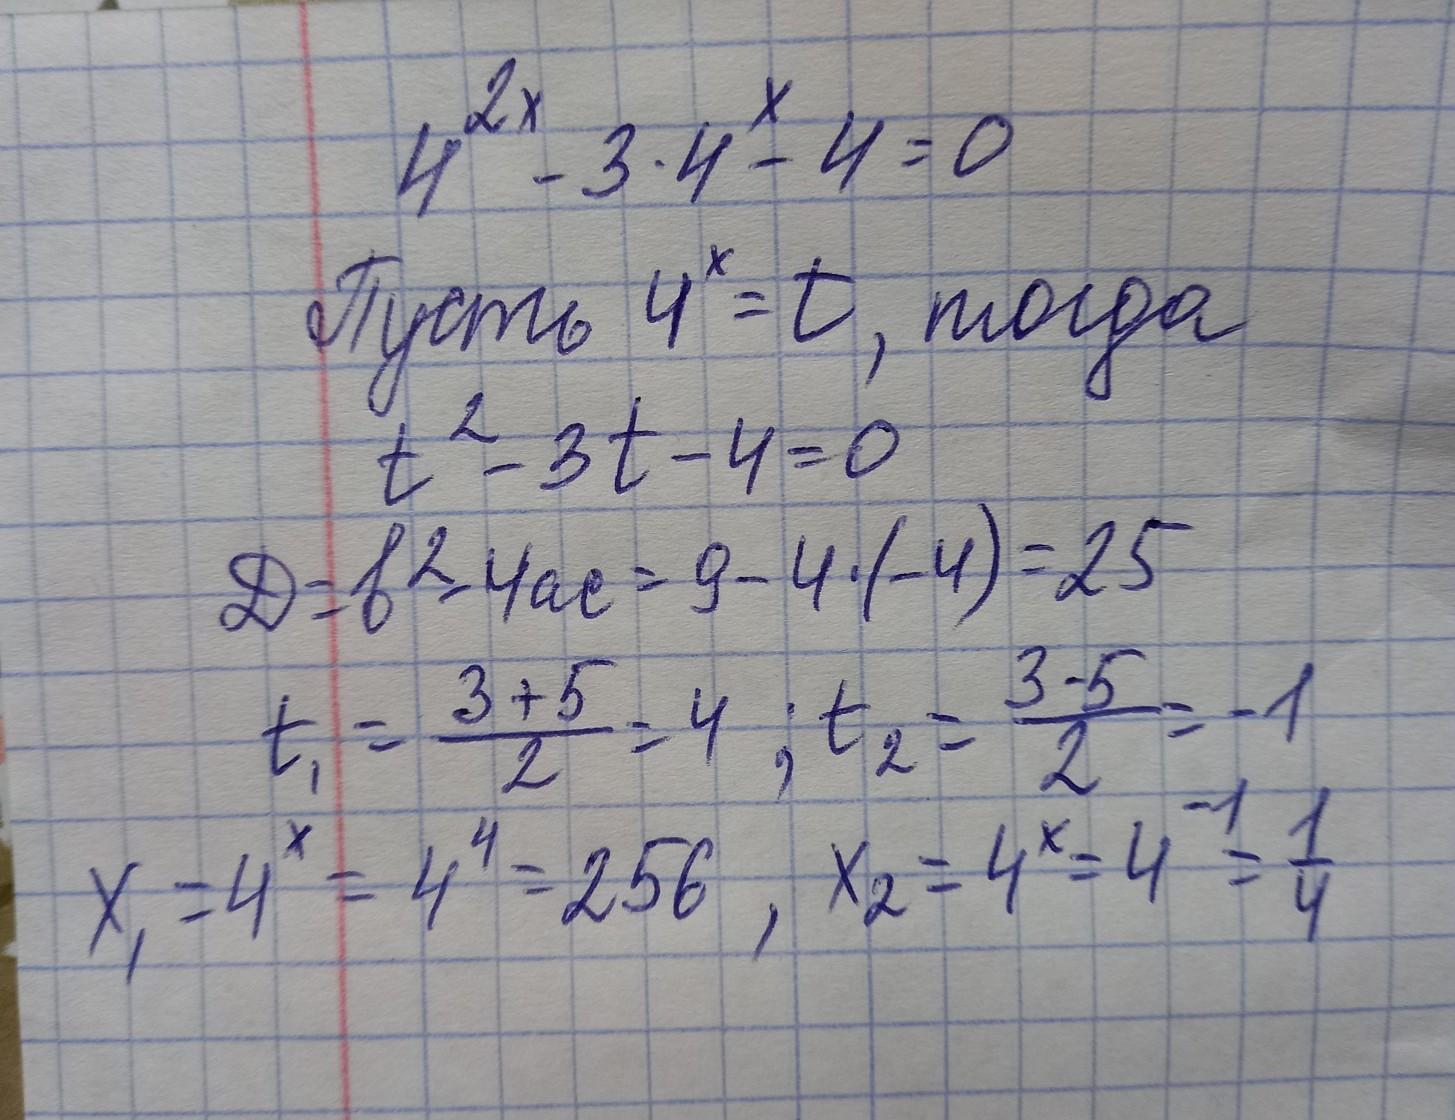 4^{2x} - 3·4^x - 4 = 0
Пусть 4^x = t, тогда
t^2 - 3t - 4 = 0
Д = b^2 - 4ac = 9 - 4·(-4) = 25
t_1 = \frac{3+5}{2} = 4 ; t_2 = \frac{3-5}{2} = -1
x_1 = 4^x = 4^4 = 256 , x_2 = 4^x = 4^{-1} = \frac{1}{4}